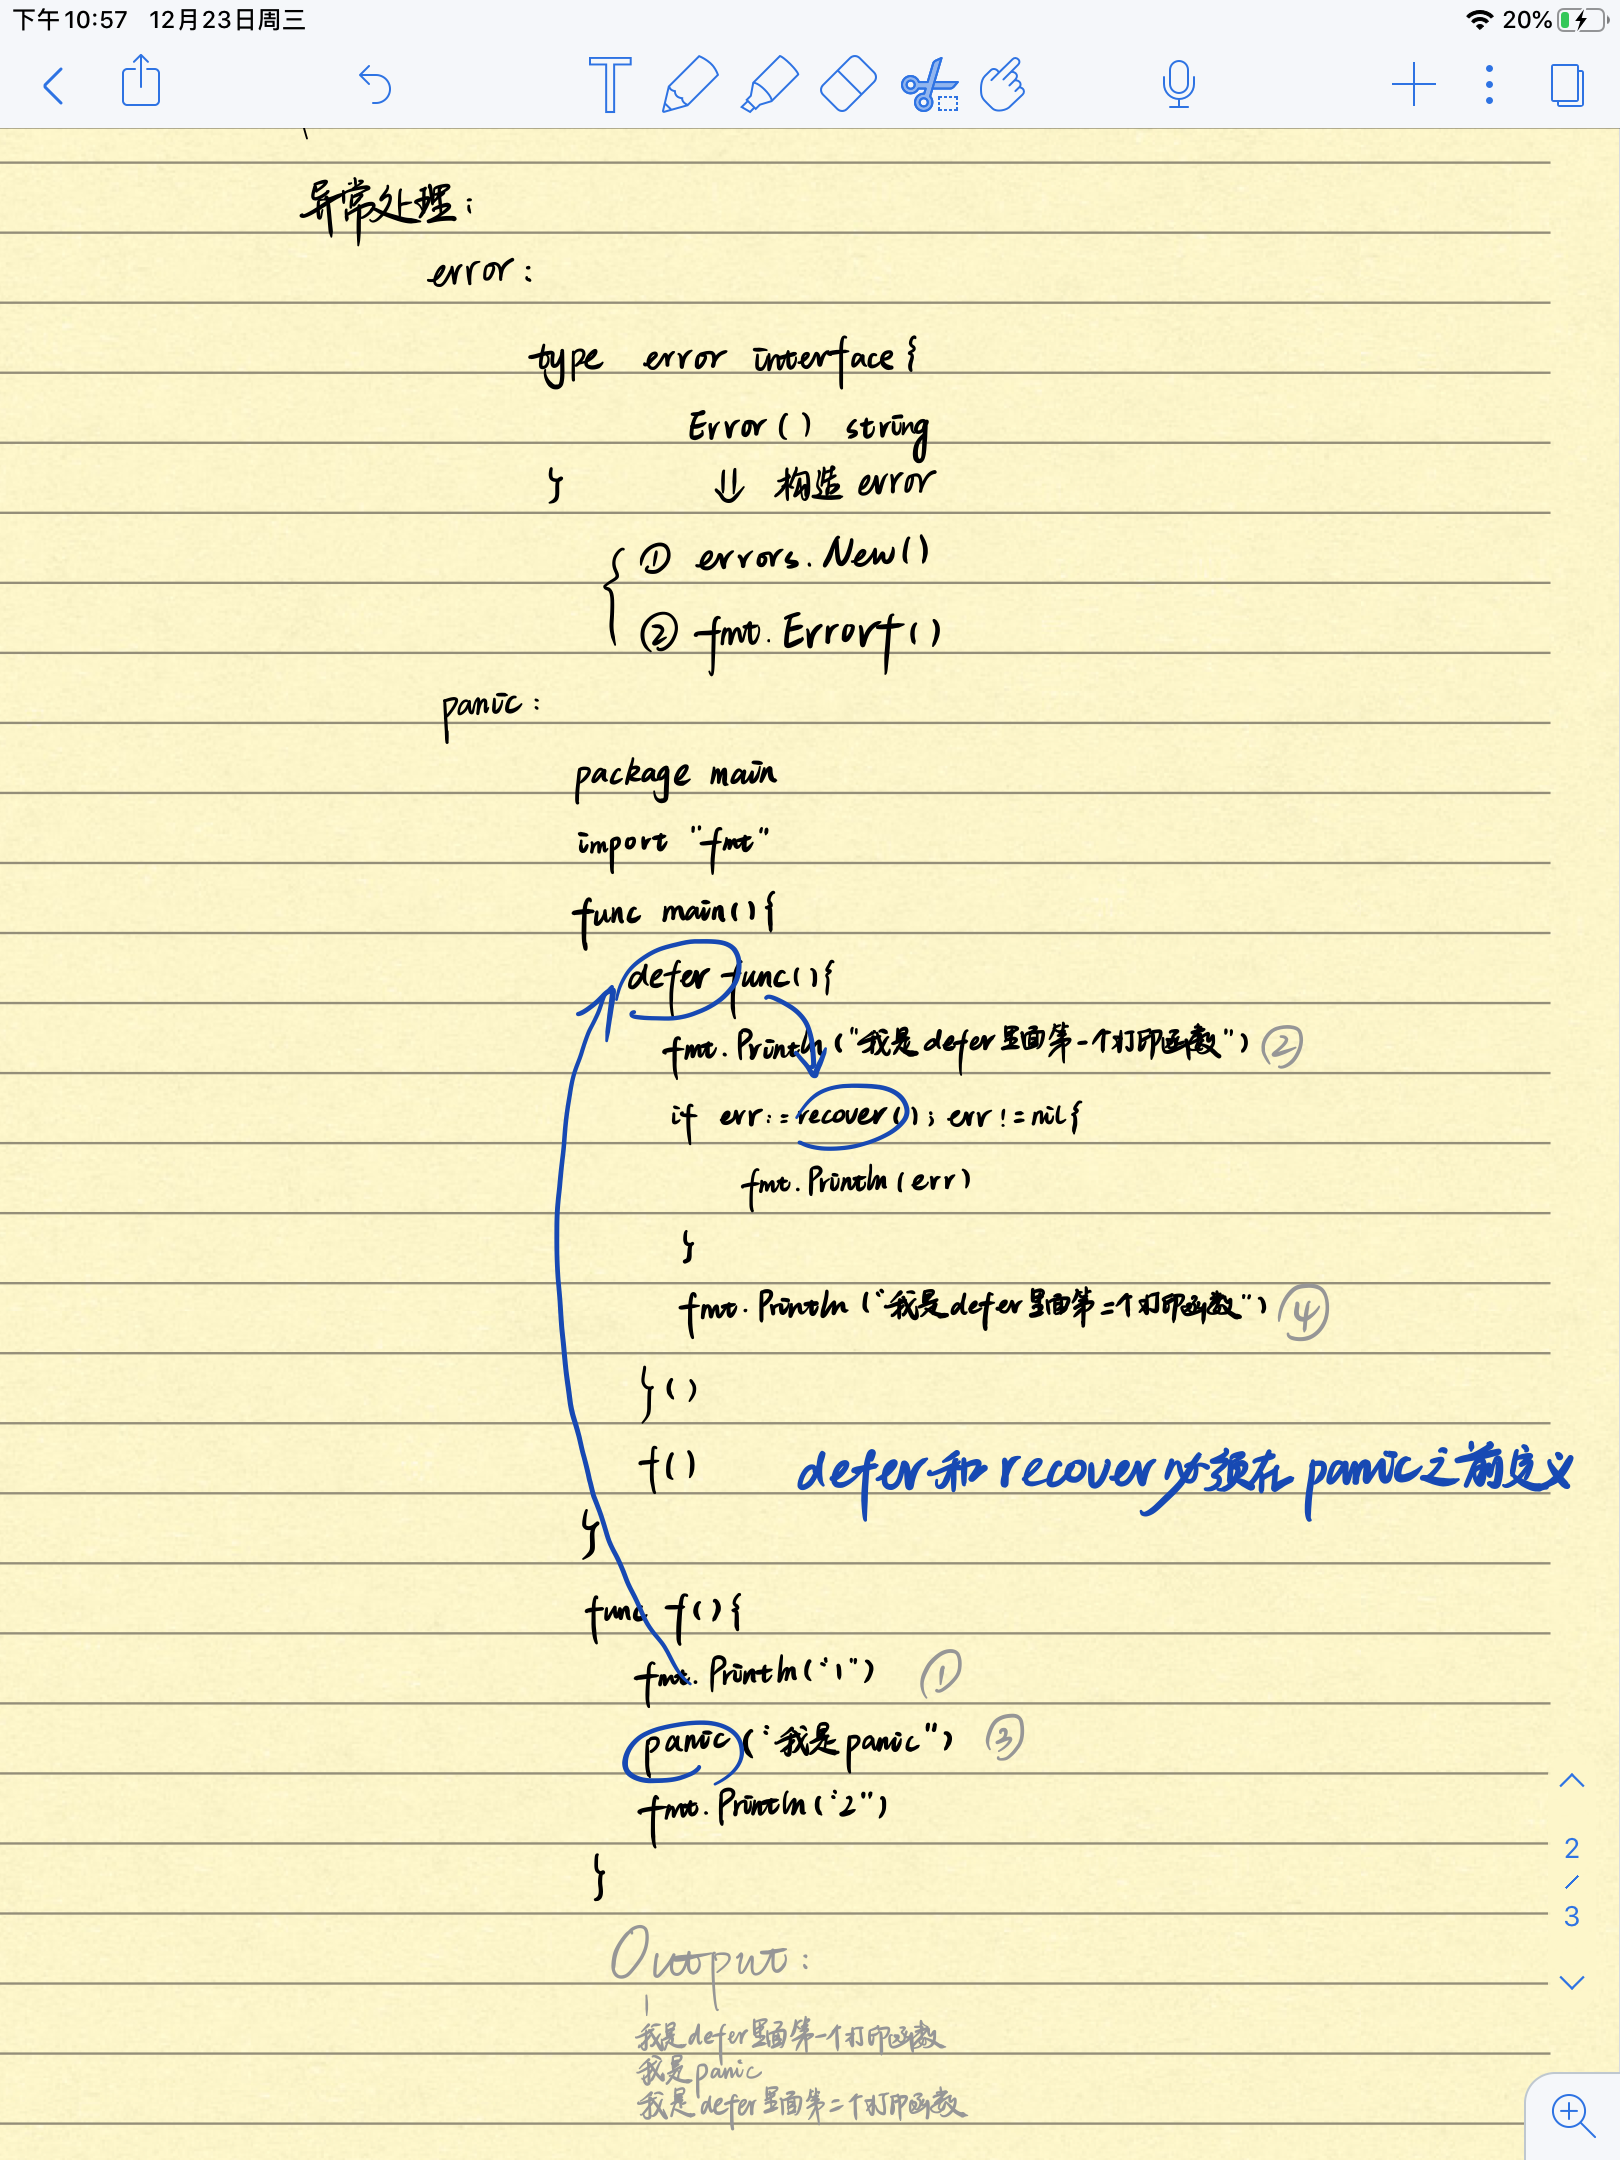 下午10:57 12月23日周三 20%
异常处理:
error:
type error interface{
Error() string
} ⇓ 构造 error
① errors.New()
② fmt.Errorf()
panic:
package main
import "fmt"
func main(){
defer func(){
fmt.Println("我是defer里面第一个打印函数") ②
if err:=recover(); err!=nil{
fmt.Println(err)
}
fmt.Println("我是defer里面第二个打印函数") ④
}()
f() defer和recover必须在panic之前定义
}
func f(){
fmt.Println("1") ①
panic("我是panic") ③
fmt.Println("2")
}
Output:
1
我是defer里面第一个打印函数
我是panic
我是defer里面第二个打印函数
2
/
3